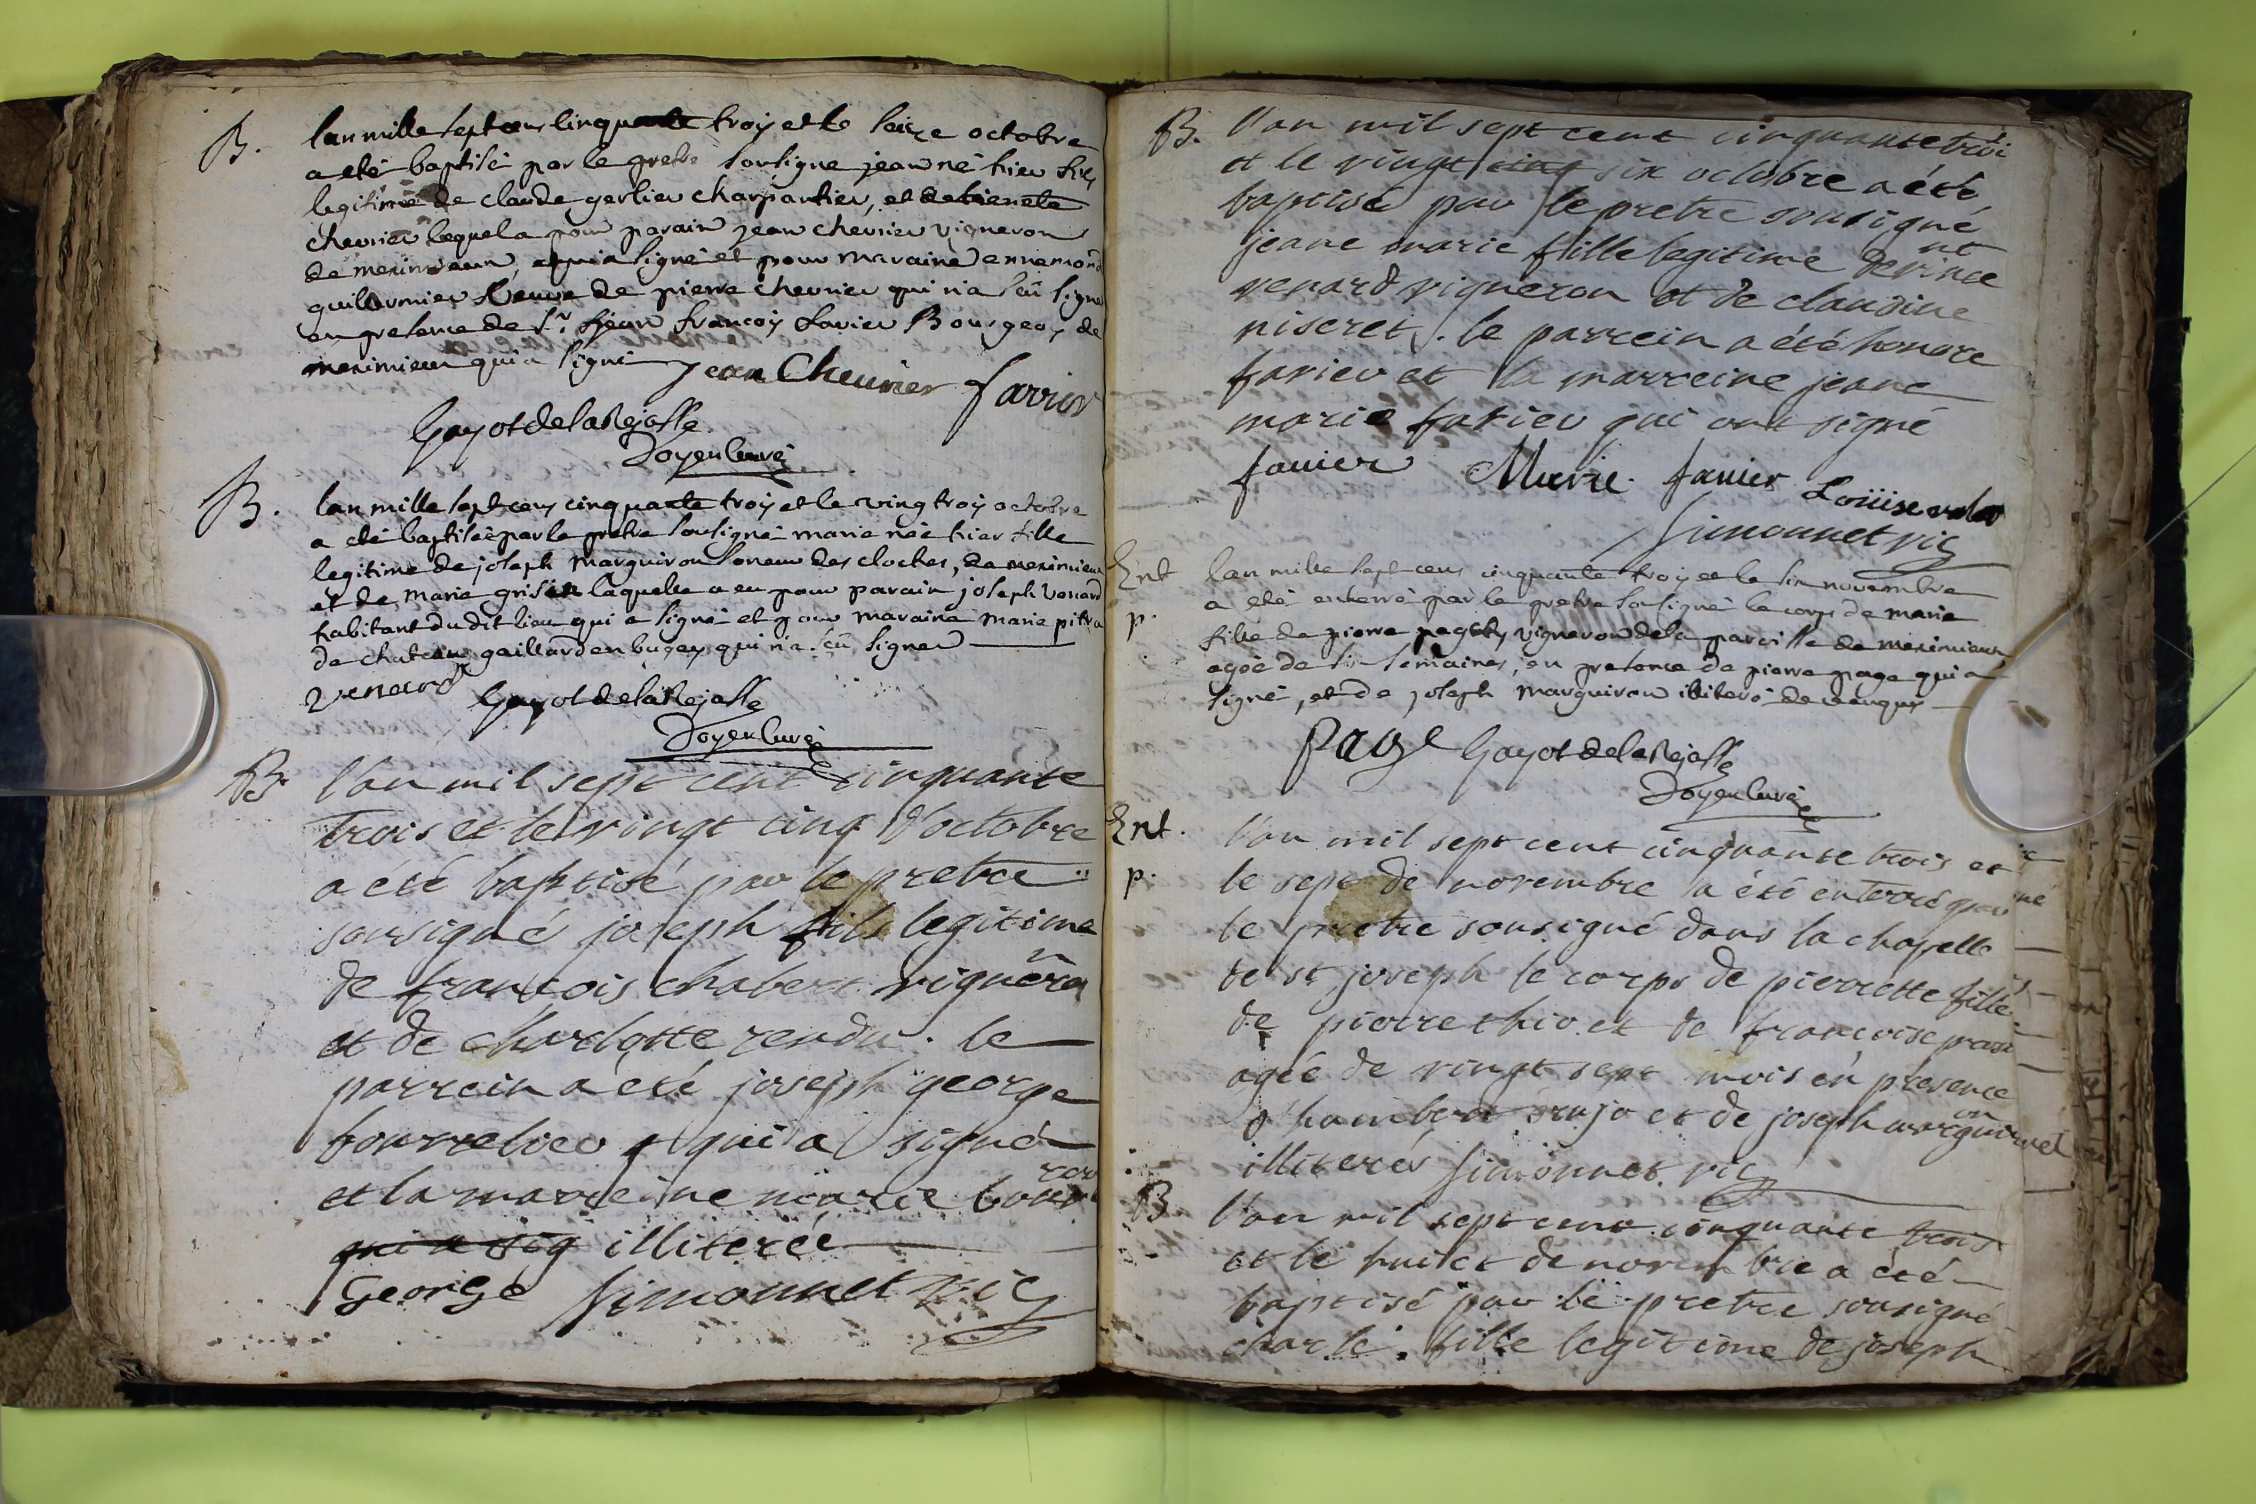 B. lan mille sept cens cinquante troy et le seize octobre
a eté baptisé par le pretre soussigne jean né hier fils
legitime de claude gerlier charpantier, et detienete
chevrier lequel a pour parain jean chevrier vigneron
de meximieux, qui a signé et pour maraine ennemond
guillermier veuve de pierre chevrier qui n'a sçû signer
en presence de Sr. jean françoy favier Bourgeoy de
meximieux qui a signé jean Cheurier favrier
Gayot de la Rejasse
Doyen Curé
B. lan mille sept cens cinquante troy et le vingtroy octobre
a eté baptisée par le pretre soussigné marie née hier fille
legitime de joseph marguiron soneur des cloches, de meximieux
et de marie grisin laquelle a eu pour parain joseph venard
habitant du dit lieu qui a signé et pour maraine marie pitra
de chateau gaillard en bugey qui n'a sçû signer
venard Gayot de la Rejasse
Doyen Curé
B. l'an mil sept cent cinquante
trois et le vingt cinq d'octobre
a été baptisé par le pretre
sousigné joseph fils legitime
de francois chabert vigneron
et de charlotte rendu. le
parrein a été joseph george
bourrelier qui a signé
et la marreine marie
qui a sig illiterée
George Simonnet vic
B. l'an mil sept cent cinquante troi
et le vingt cinq six octobre a été
baptisé par le pretre sousigné
jeane marie fille legitime de vincent
venard vigneron et de claudine
niseret. le parrein a été honore
favier et la marreine jeane
marie favier qui ont signé
fauier Marie fauier Loüise
Simonnet vic
Ent lan mille sept cens cinquante troy et le six novembre
p. a eté enterré par le pretre soussigné le corps de marie
fille de pierre vigneron de la paroisse de meximieux
agée de six semaines, en presence de pierre page qui a
signé, et de joseph marguiron illiteré de requis
Page Gayot de la Rejasse
Doyen Curé
Ent. l'an mil sept cent cinquante trois et
p. le sept de novembre a été enterré par
le pretre sousigné dans la chapelle
de st joseph le corps de pierrette fille
de pierre thio et de francoise
agée de vingt sept mois en presence
d'hambert et de joseph marguironet
illiterés Simonnet. vic
B l'an mil sept cent cinquante trois
et le huict de novembre a été
baptisé par le pretre sousigné
charle. fille legitime de joseph